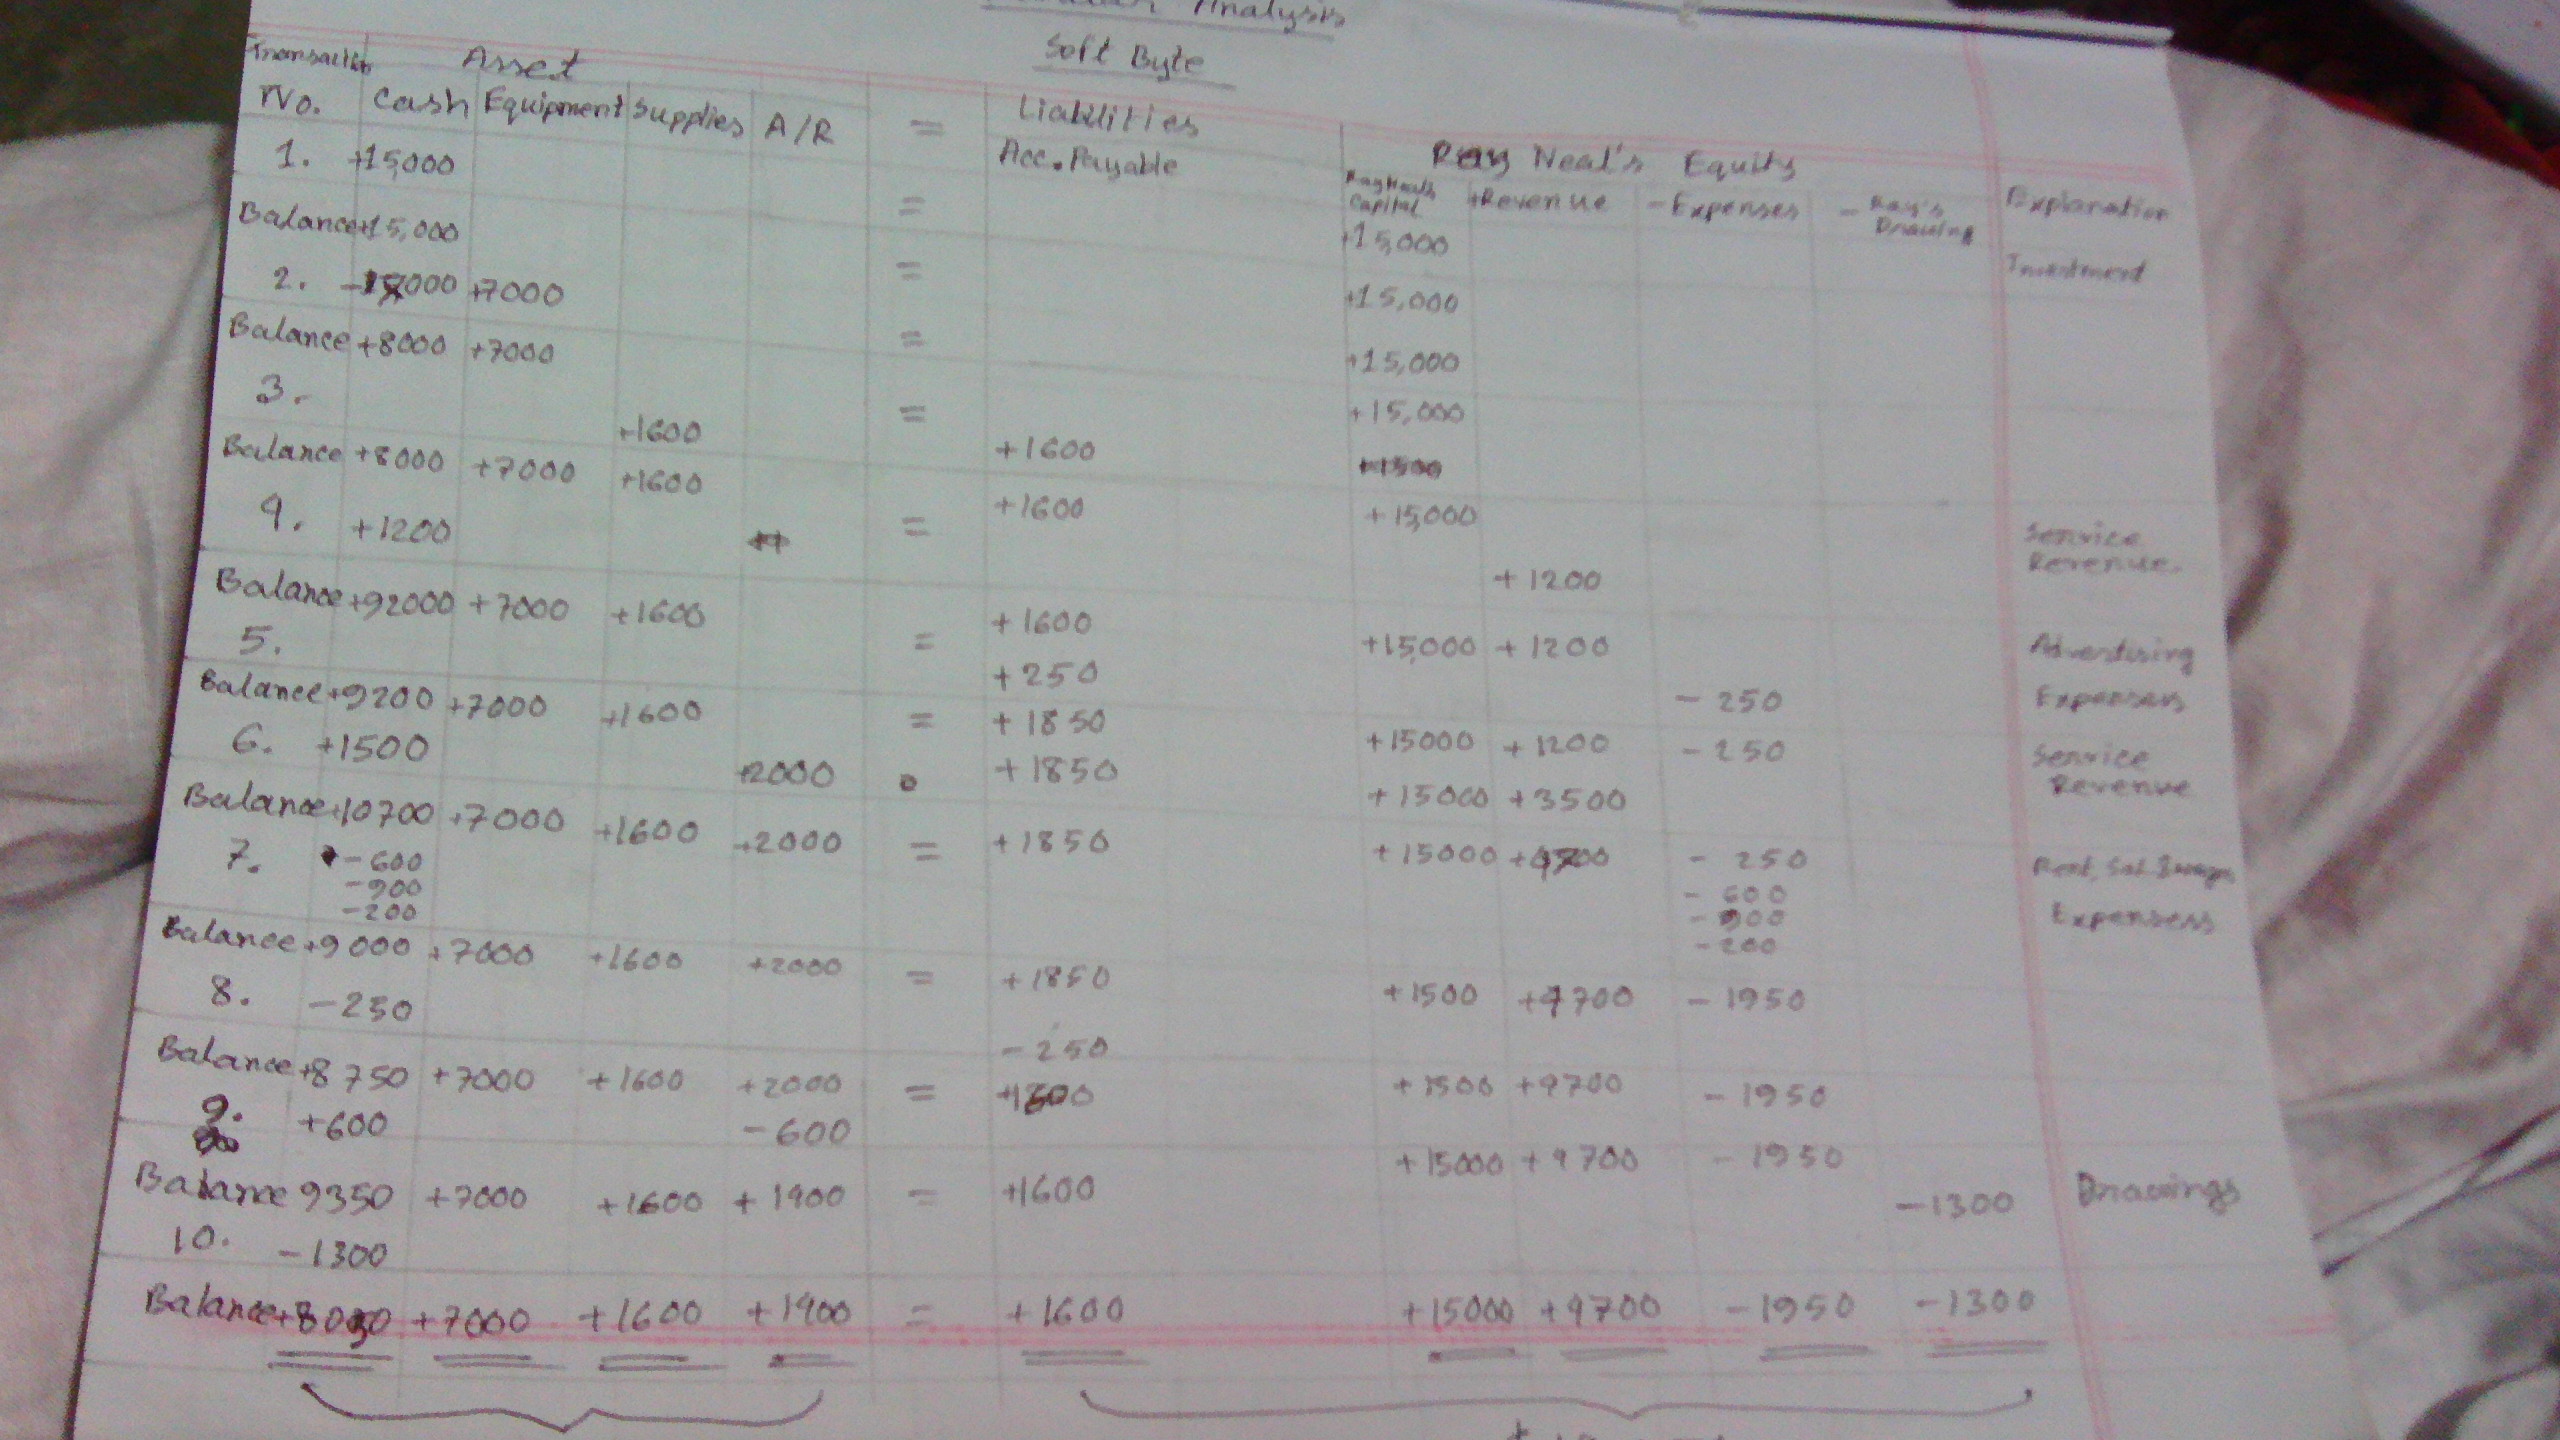 Analysis
Soft Byte
Asset
No. Cash Equipment Supplies A/R = Liabilities Acc. Payable Ray Neal's Equity
Capital +Revenue -Expenses - Ray's Drawing Explanation
1. +15,000 = +15,000 Investment
Balance +15,000 = +15,000
2. 7000 +7000 = +15,000
Balance +8000 +7000 = +15,000
3. +1600 +1600
Balance +8000 +7000 +1600 = +1600 +15,000
4. +1200 +1200 Service Revenue
Balance +92000 +7000 +1600 = +1600 +15,000 +1200
5. +250 -250 Advertising Expenses
Balance +9200 +7000 +1600 = +1850 +15000 +1200 -250
6. +1500 +2000 +1850 +15000 +3500 Service Revenue
Balance +10700 +7000 +1600 +2000 = +1850 +15000 +4700 -250
7. -600 -600 Rent, Sal.
-900 -900 Expensess
-200 -200
Balance +9000 +7000 +1600 +2000 = +1850 +1500 +4700 -1950
8. -250 -250
Balance +8750 +7000 +1600 +2000 = +1600 +1500 +4700 -1950
9. +600 -600
Balance 9350 +7000 +1600 +1400 = +1600 +15000 +4700 -1950
10. -1300 -1300 Drawings
Balance +8050 +7000 +1600 +1400 = +1600 +15000 +4700 -1950 -1300